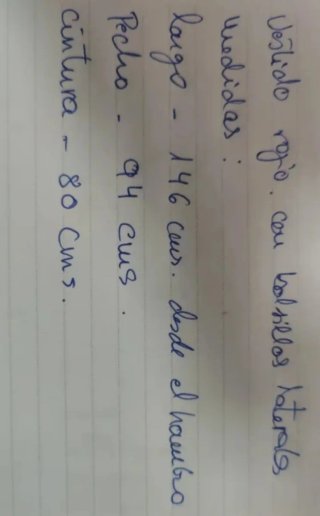 Vestido rojo. con bolsillos laterales
medidas:
largo - 146 cms. desde el hombro
Pecho - 94 cms.
cintura - 80 cms.